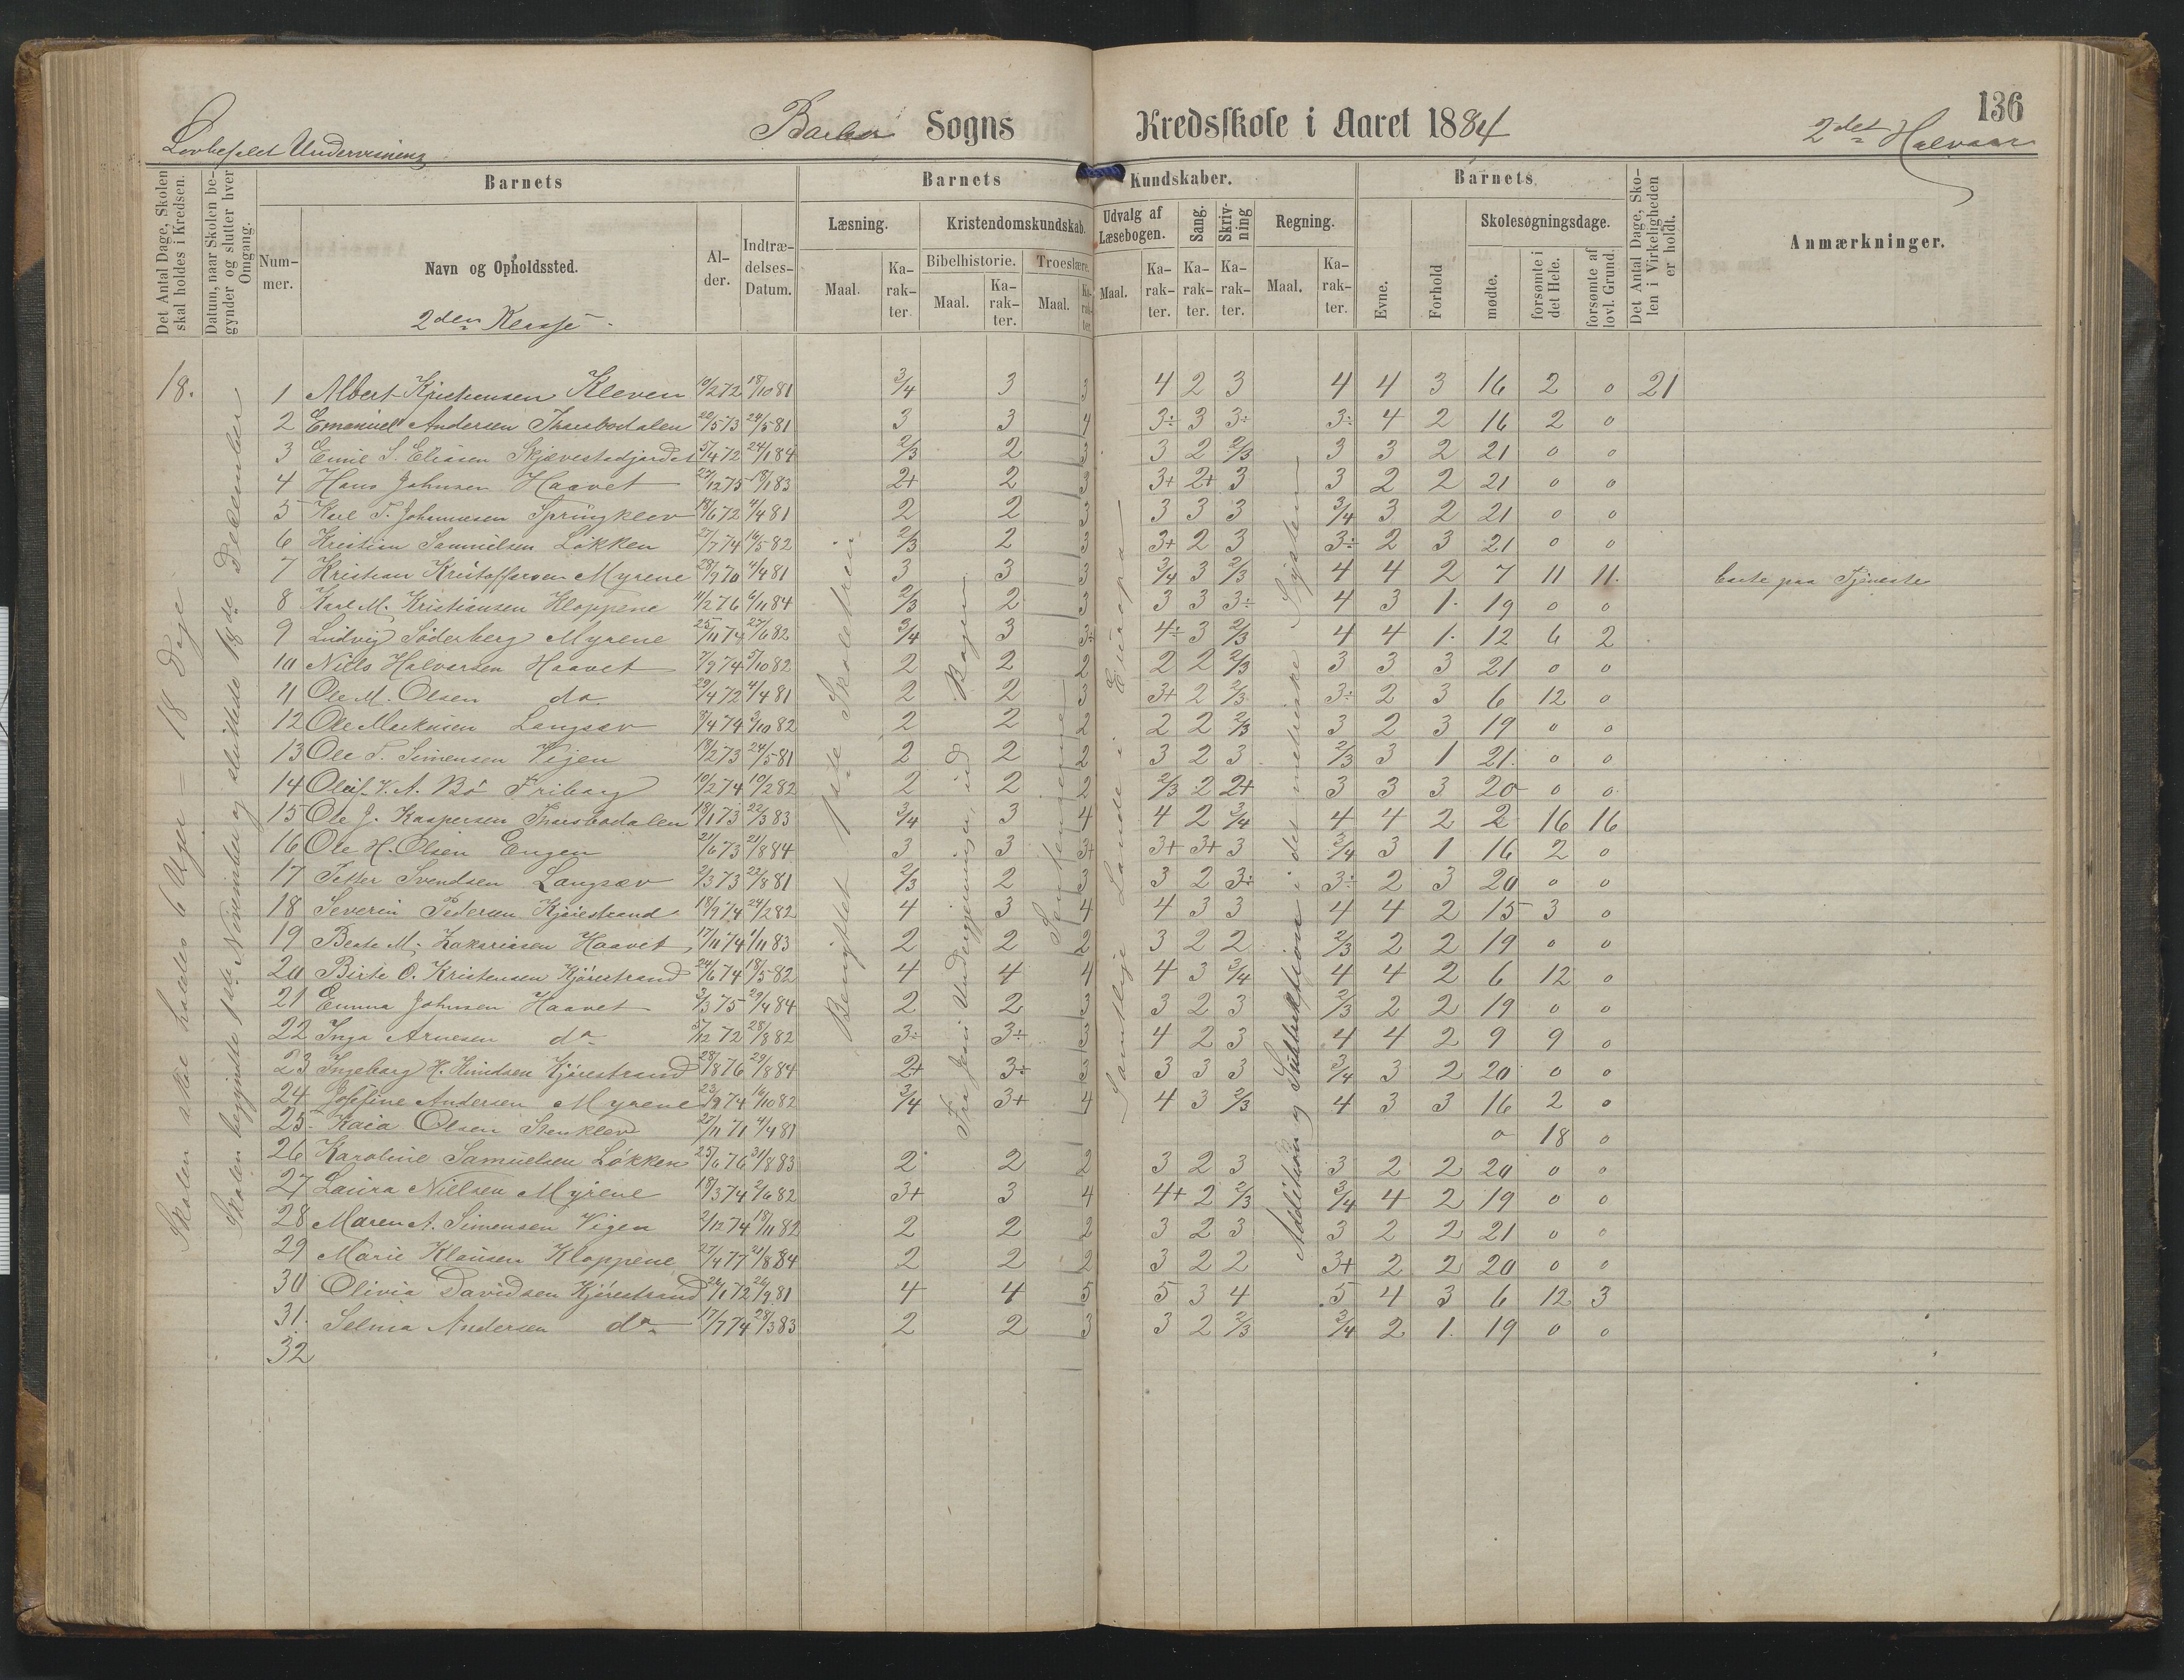 136
Lovbefalet Undervisning
Barbo Sogns Kredsskole i Aaret 1884
2det Halvaar
Det Antal Dage, Skolen skal holdes i Kredsen.
Datum, naar Skolen begynder og slutter hver Omgang.
Barnets
Barnets Kundskaber.
Barnets
Det Antal Dage, Skolen i Virkeligheden er holdt.
Anmærkninger.
Nummer.
Navn og Opholdssted.
Alder.
Indtrædelses-Datum.
Læsning.
Kristendomskundskab.
Udvalg af Læsebogen.
Sang.
Skrivning
Regning.
Evne.
Forhold
Skolesøgningsdage.
Bibelhistorie.
Troeslære.
Maal.
Karakter
Maal.
Karakter.
Maal.
Karakter
Maal.
Karakter.
Karakter.
Karakter.
Maal.
Karakter.
mødte.
forsømte i det Hele.
forsømte af lovl. Grund.
2den Klasse
18.
Skolen skal holdes 6 Uger = 18 Dage
Skolen begyndte 1ste November og sluttede 18de December
Benyttet 1ste Skoletrin
Fra Jesu Undergjerninger ud Bogen
Samtlige Lande i Europa
Addition og Subtraktion i det metriske System
1 Albert Kristensen Kleven 10/2 72 18/10 81 3/4 3 3 4 2 3 4 4 3 16 2 0 21
2 Emanuel Andersen Thorsbodalen 22/5 73 24/5 81 3 3 4 3÷ 3 3÷ 3÷ 4 2 16 2 0
3 Emil S. Eliasen Skjævestadjordet 5/4 72 24/1 84 2/3 2 3 3 2 2/3 3 3 2 21 0 0
4 Hans Johnsen Haavet 27/12 75 18/1 83 2+ 2 3 3+ 2+ 3 3 2 2 21 0 0
5 Karl T. Johannesen Springklev 18/6 72 4/4 81 2 2 3 3 3 3 3/4 3 2 21 0 0
6 Kristian Samuelsen Løkken 27/7 74 16/5 82 2/3 2 3 3+ 2 3 3÷ 2 3 21 0 0
7 Kristian Kristoffersen Myrene 28/9 70 4/4 81 3 3 3 3/4 3 2/3 4 4 2 7 11 11. borte paa Tjeneste
8 Karl M. Kristiansen Kloppene 11/2 76 6/11 84 2/3 2 3 3 3 3÷ 4 3 1. 19 0 0
9 Ludvig Söderberg Myrene 25/11 74 27/6 82 3/4 3 3÷ 4÷ 3 2/3 4 4 1. 12 6 2
10 Niels Halvorsen Haavet 7/9 74 5/10 82 2 2 2 2 2 2/3 3 3 3 21 0 0
11 Ole M. Olsen do 29/4 72 4/4 81 2 2 3 3+ 2 2/3 3÷ 2 3 6 12 0
12 Ole Markusen Langsæv 3/4 74 3/10 82 2 2 2 2 2 2/3 3 2 3 19 0 0
13 Ole T. Simensen Vigen 18/2 73 24/5 81 2 2 2 3 2 3 2/3 3 1 21. 0 0
14 Oluf V. A. Bö Friborg 10/2 74 10/2 82 2 2 2 2/3 2 2+ 3 3 3 20 0 0
15 Ole J. Kaspersen Thorsbodalen 18/1 73 22/3 83 3/4 3 4 4 2 3/4 4 4 2 2 16 16
16 Ole H. Olsen Engen 21/6 73 21/8 84 3 3 3+ 3+ 3+ 3 3/4 3 1 16 2 0
17 Petter Svendsen Langsæv 2/3 73 22/8 81 2/3 2 3 3 2 3÷ 3÷ 2 3 20 0 0
18 Severin Pedersen Kjørestrand 18/9 74 24/2 82 4 3 4 4 3 3 4 4 2 15 3 0
19 Beate M. Zakariasen Haavet 17/11 74 1/11 83 2 2 2 3 2 2 2/3 2 2 19 0 0
20 Birte O. Kristensen Kjørestrand 24/6 74 18/5 82 4 4 4 4 3 3/4 4 4 2 6 12 0
21 Emma Johnsen Haavet 3/3 75 29/4 84 2 2 3 3 2 3 2/3 2 2 19 0 0
22 Inga Arnesen do 5/12 72 28/8 82 3÷ 3÷ 3 4 2 3 4 4 2 9 9 0
23 Ingeborg H. Knudsen Kjørestrand 28/8 76 29/8 84 2+ 3÷ 3 3 3 3 3/4 3 2 20 0 0
24 Josefine Andersen Myrene 23/9 74 16/10 82 3/4 3+ 4 4 3 2/3 4 3 3 16 2 0
25 Kaia Olsen Stenklev 27/11 71 4/4 81 0 18 0
26 Karoline Samuelsen Løkken 25/6 76 31/8 83 2 2 2 3 2 3 3 2 2 20 0 0
27 Laura Nielsen Myrene 18/3 74 2/6 82 3+ 3 4 4+ 2 2/3 3/4 4 2 19 0 0
28 Maren A. Simensen Vigen 2/12 74 18/11 82 2 2 2 3 2 3 3 2 2 21 0 0
29 Marie Klausen Kloppene 27/4 77 21/8 84 2 2 2 3 2 2 3+ 2 2 20 0 0
30 Olivia Davidsen Kjørestrand 26/1 72 26/9 81 4 4 5 5 3 4 5 4 3 6 12 3
31. Selma Andersen do 17/7 74 28/3 83 2 2 3 3 2 2/3 3/4 2 1. 19 0 0
32